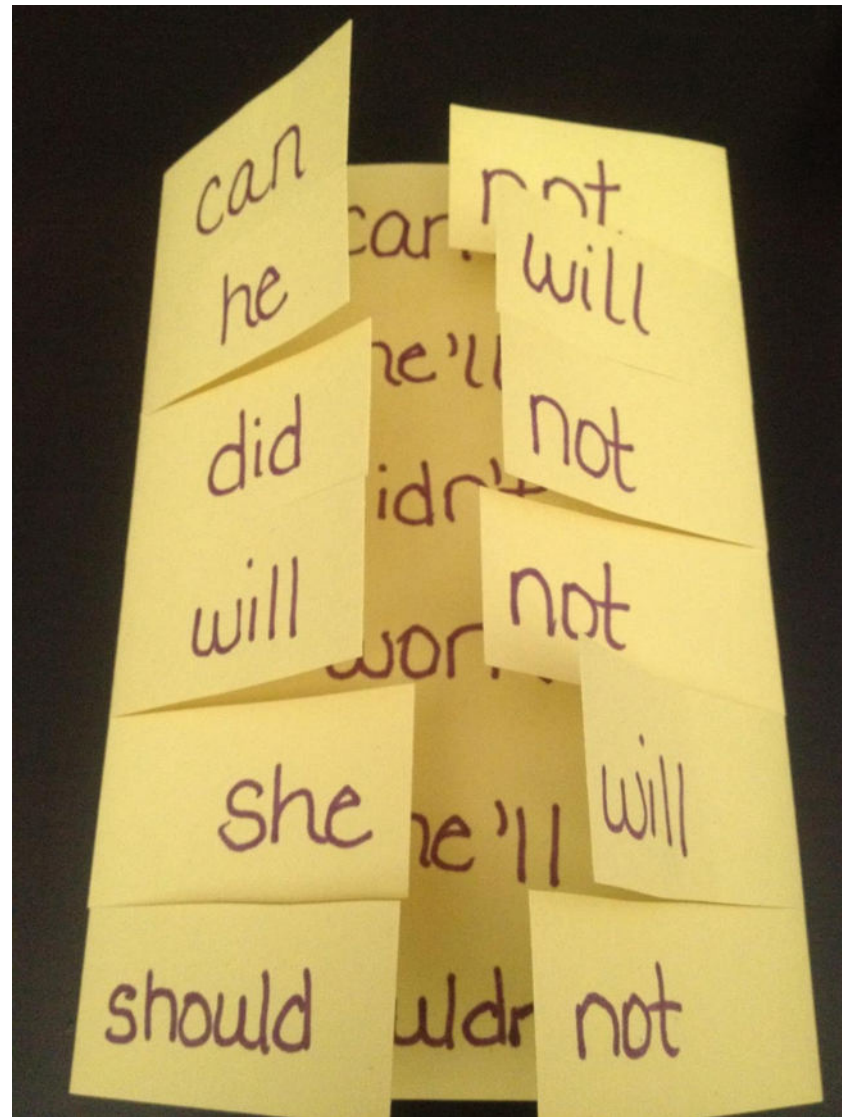 can can not
he he'll will
did didn't not
will won't not
she she'll will
should shouldn't not